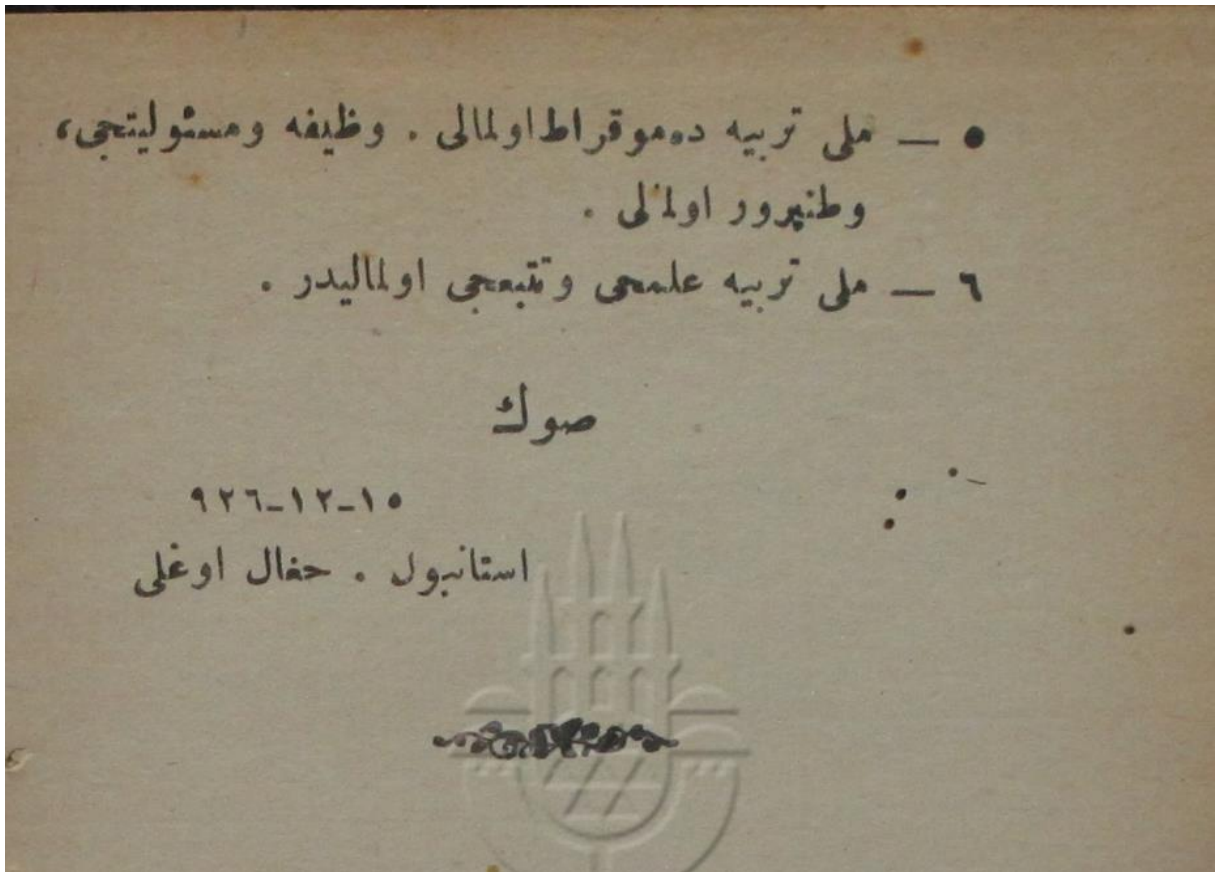 ٥ — ملی تربیه دەموقراط اولمالی . وظیفه ومسئولیتجی،
وطنپرور اولمالی .
٦ — ملی تربیه علمجی وتتبعجی اولمالیدر .
صوك
١٥-١٢-٩٢٦
استانبول . جغال اوغلی